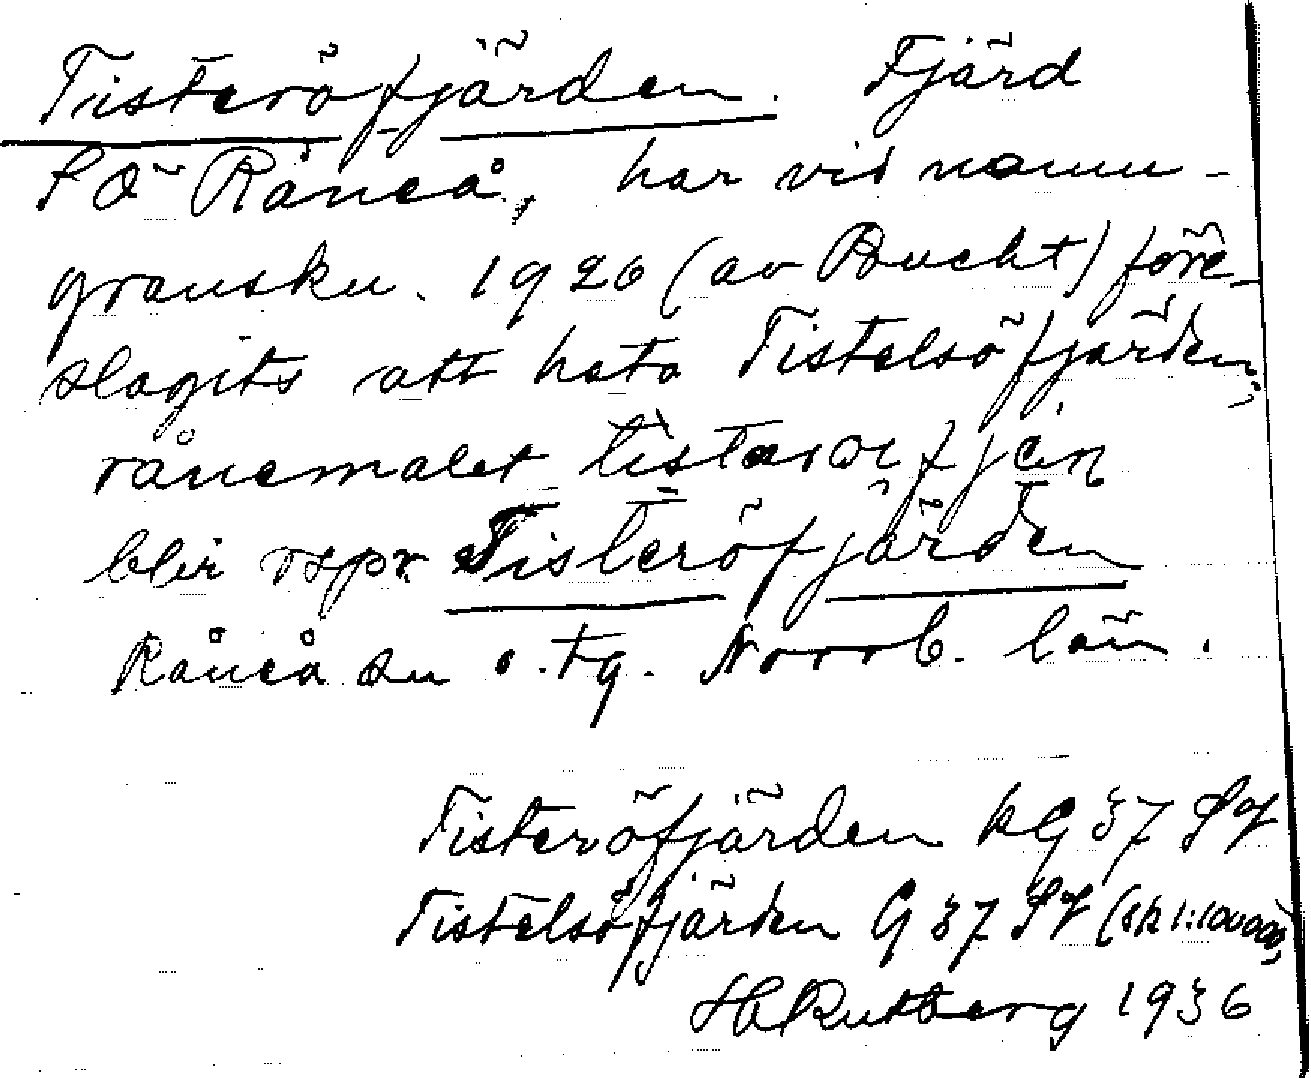 Tisteröfjärden. Fjärd
SÖ Råneå, har vid namn-
gransku. 1926 (av Bucht) före-
slagits att heta Tistelsöfjärden,
rånemalet
blir rspr Tisteröfjärden
Råneå sn o. tg. Norrb. län.
Tisteröfjärden kG 37 SV
Tistelsöfjärden G 37 SV (sk 1:100000)
H Rutberg 1936